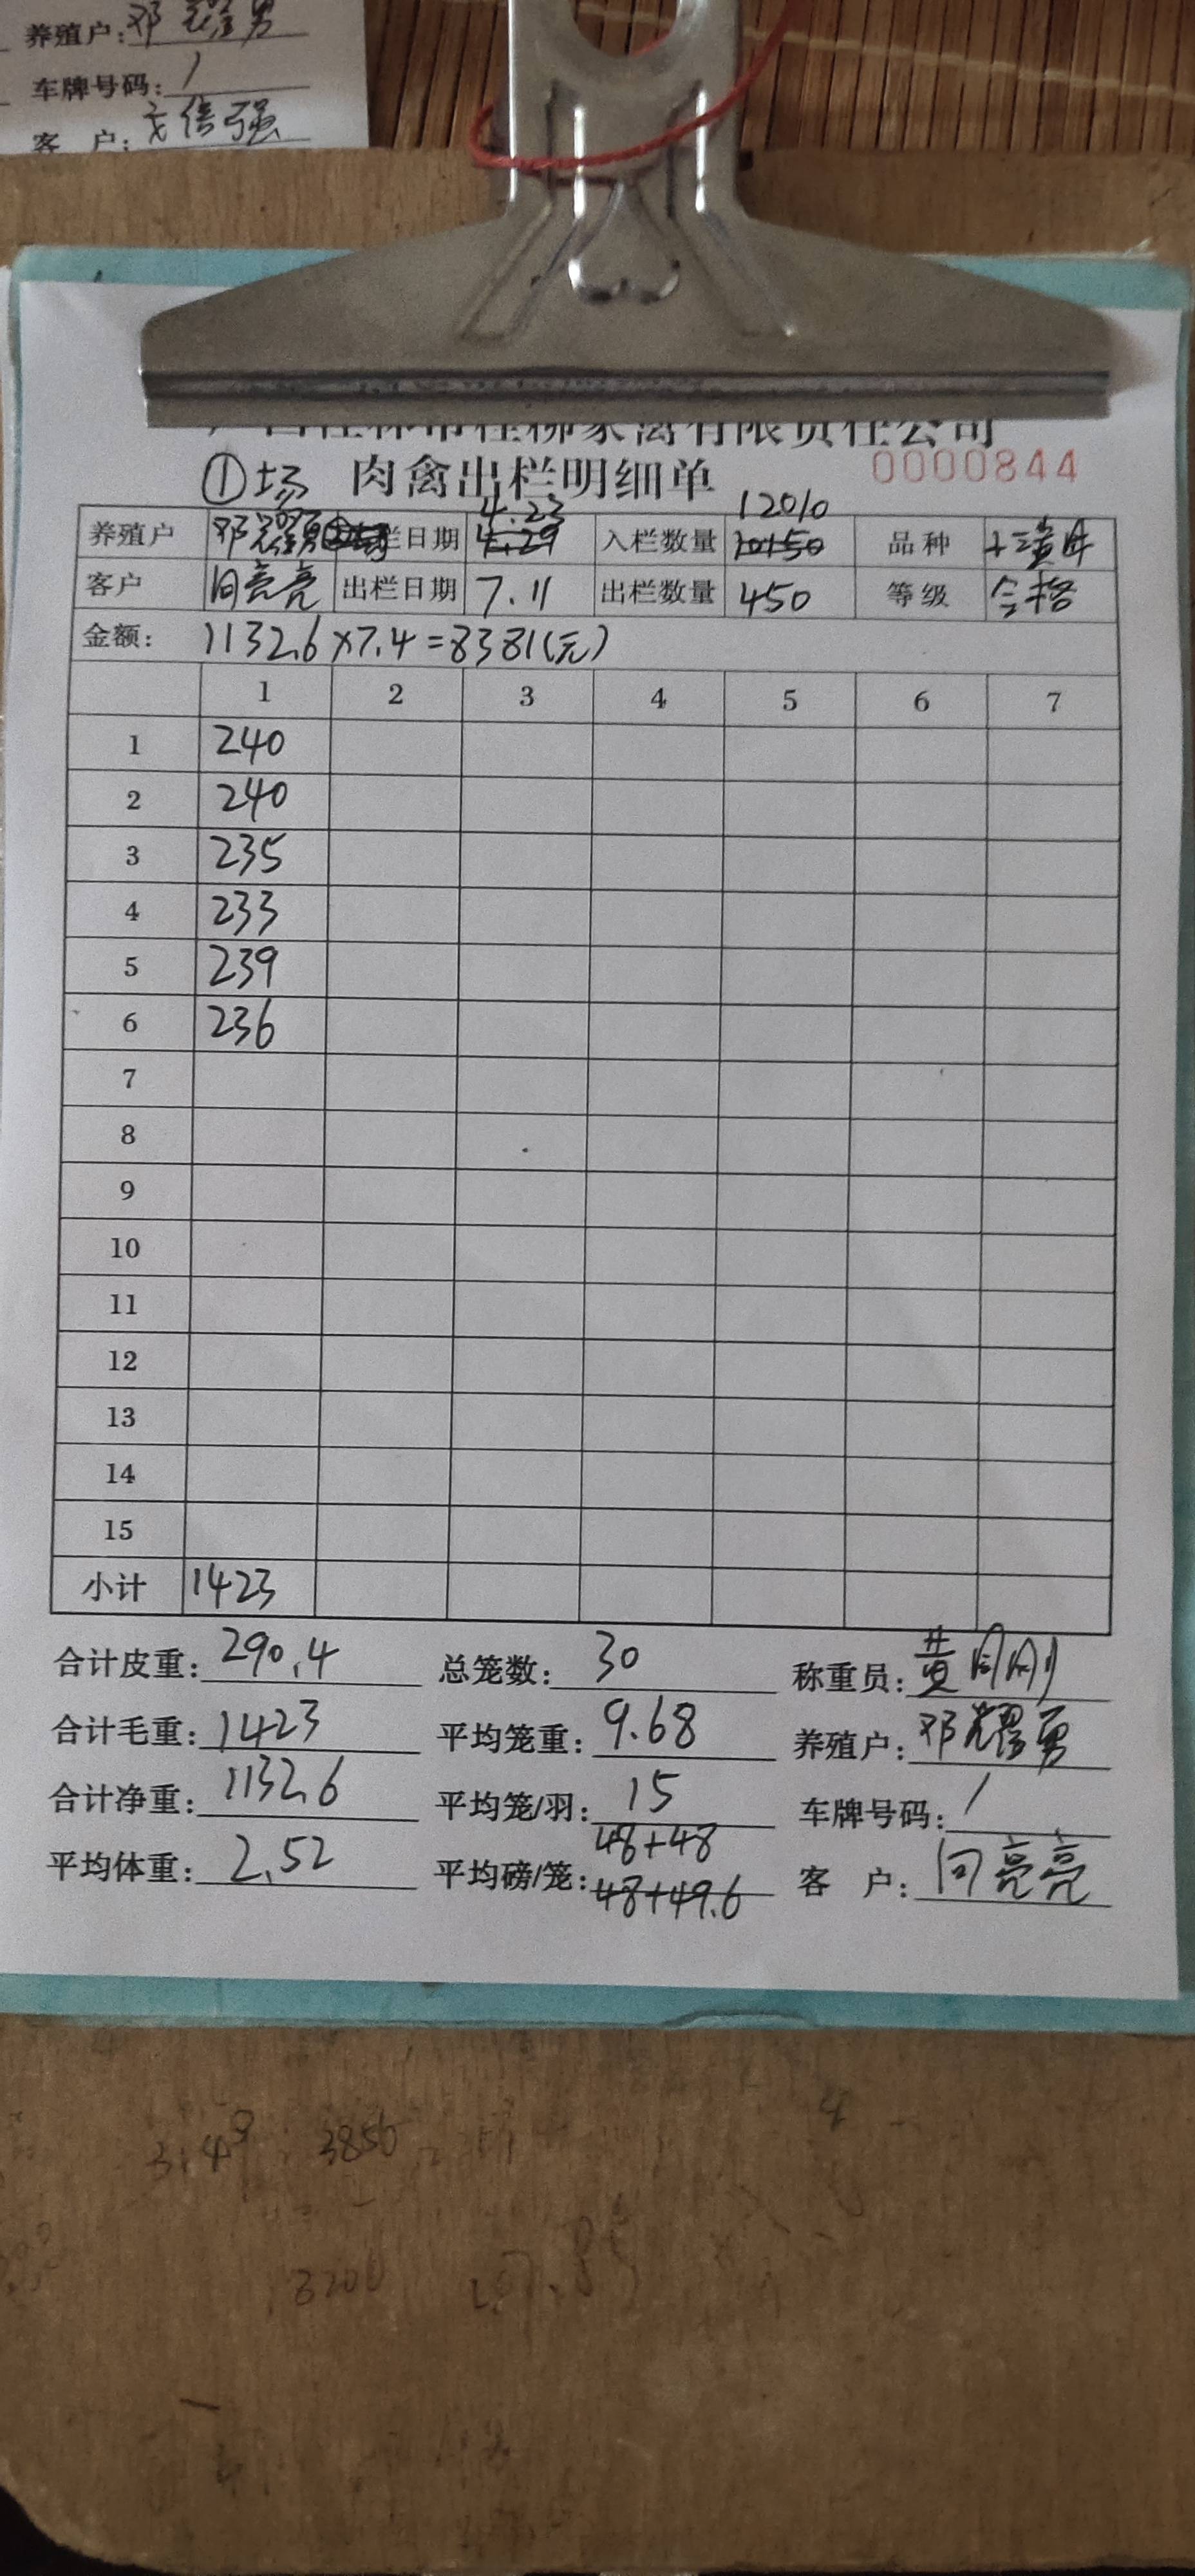 养殖户:邓耀勇
车牌号码:/
客 户:
广西桂林市桂柳家禽有限责任公司
①场 肉禽出栏明细单 0000844
4.23 12010
养殖户 邓耀勇 栏日期 4.29 入栏数量 10150 品种
客户 向亮亮 出栏日期 7.11 出栏数量 450 等级 合格
金额: 1132.6×7.4=8381(元)
1 2 3 4 5 6 7
1 240
2 240
3 235
4 233
5 239
6 236
7
8
9
10
11
12
13
14
15
小计 1423
合计皮重:290.4 总笼数:30 称重员:黄刚刚
合计毛重:1423 平均笼重:9.68 养殖户:邓耀勇
合计净重:1132.6 平均笼/羽:15 车牌号码:/
48+48
平均体重:2.52 平均磅/笼:48+49.6 客 户:向亮亮
3850
3200